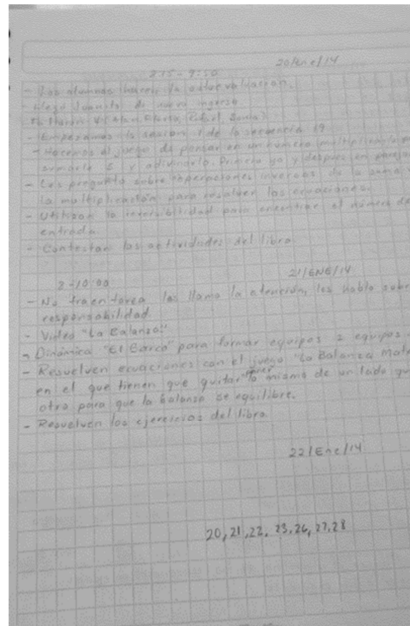 20/Ene/14
8:15 - 9:10
- Los alumnos hacen la autoevaluación.
- Llega Juanito de nuevo ingreso
- Empezamos la sesión 1 de la secuencia 19
- Hacemos el juego de pensar en un número multiplicarlo
sumarle 5 y adivinarlo. Primero yo y después en parejas
- Les pregunto sobre operaciones inversas de la suma
la multiplicación para resolver las ecuaciones.
- Utilizan la reversibilidad para encontrar el número de
entrada
- Contestan las actividades del libro
21/ENE/14
8-10:00
- No traen tarea les llamo la atención, les hablo sobre
responsabilidad.
- Video "La Balanza"
- Dinámica "El Barco" para formar equipos 2 equipos
- Resuelven ecuaciones con el juego "La Balanza
en el que tienen que quitar lo mismo de un lado
otro para que la balanza se equilibre.
- Resuelven los ejercicios del libro
22/Ene/14
20, 21, 22, 23, 26, 27, 28